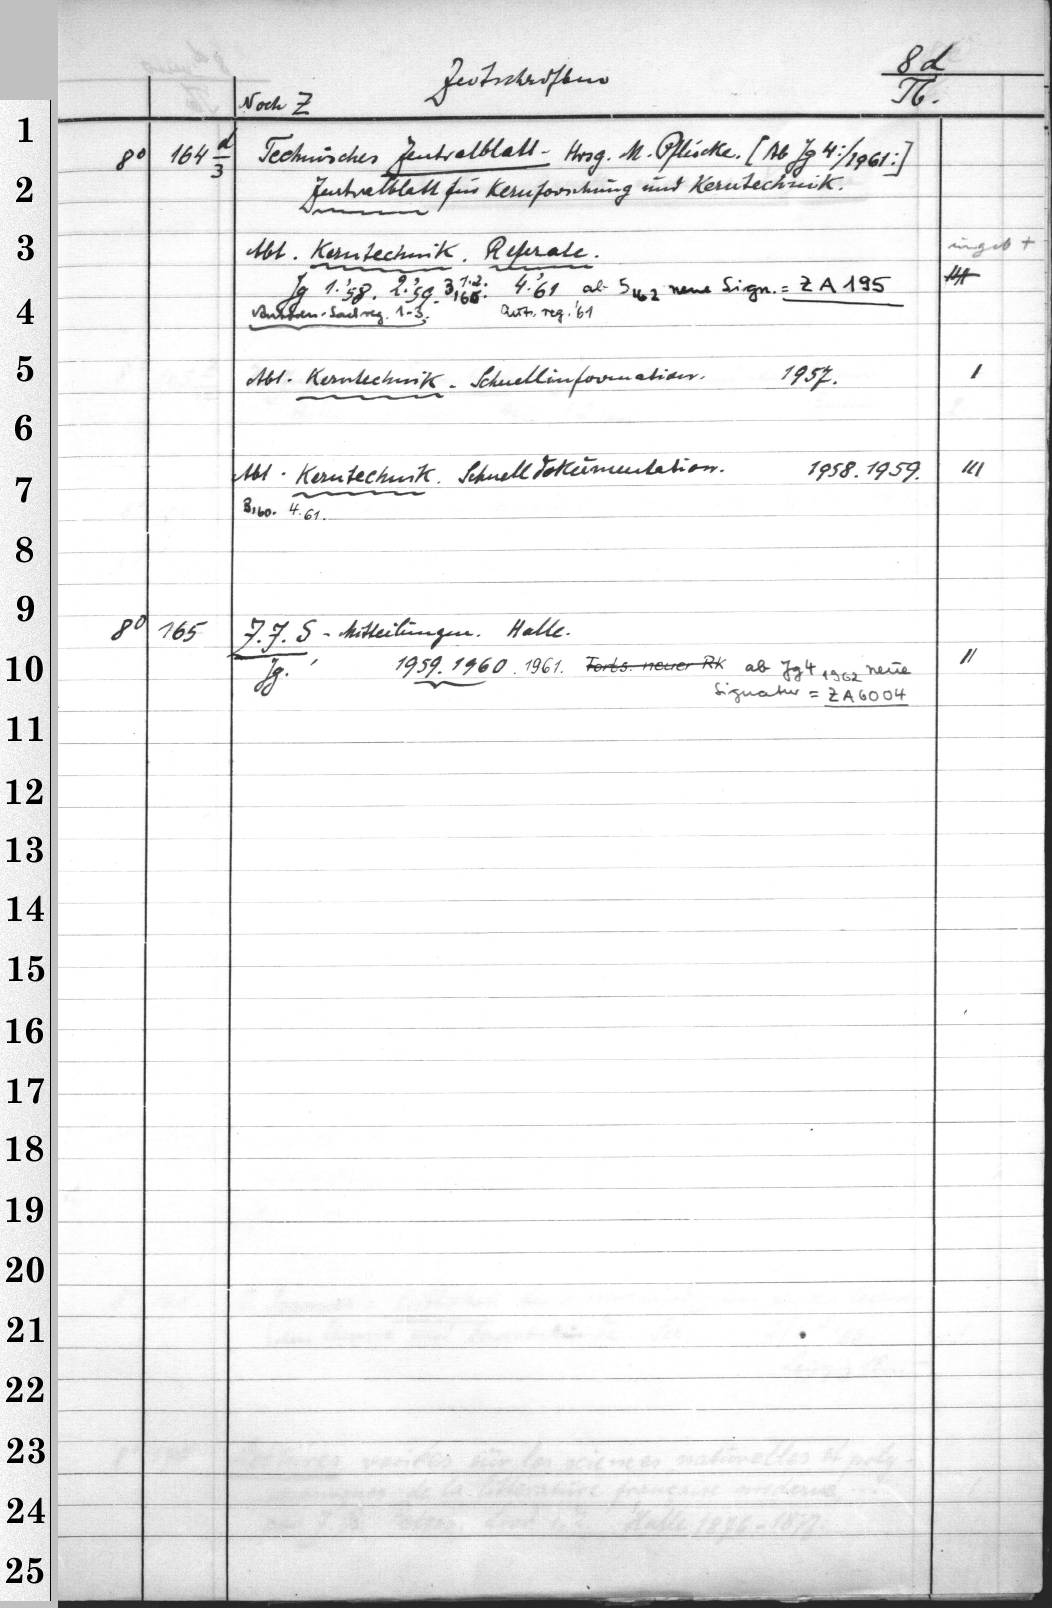 Zeitschriften
8 d
Noch Z
8° 164 d/3 Technisches Zentralblatt - Hrsg. M. Pflücke. [Ab Jg 4:/1961:]
Zentralblatt für Kernforschung und Kerntechnik.
Abt. Kerntechnik. Referate. ungeb +
Jg 1.'58. 2.'59. 3,1.2.'60. 4.'61 ab 5,'62 neue Sign. = ZA 195
Sachreg. 1-3. Aut. reg. '61
Abt. Kerntechnik. Schnellinformation. 1957. I
Abt. Kerntechnik. Schnelldokumentation. 1958. 1959. III
3,'60. 4.'61.
8° 165 Z.J.S - Mitteilungen. Halle.
Jg. 1959. 1960. 1961. Forts. neuer RK ab Jg 4 1962 neue II
Signatur = ZA 6004
1
2
3
4
5
6
7
8
9
10
11
12
13
14
15
16
17
18
19
20
21
22
23
24
25